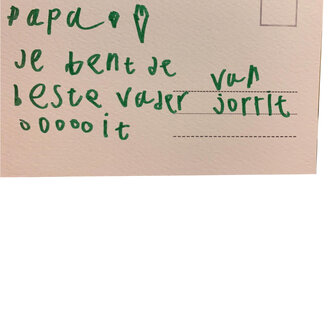 papa
Je bent de
beste vader
ooooo it
van
jorrit